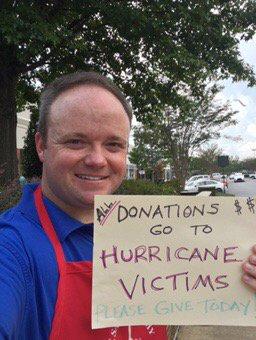 ALL DONATIONS $ $
GO TO
HURRICANE
VICTIMS
PLEASE GIVE TODAY!